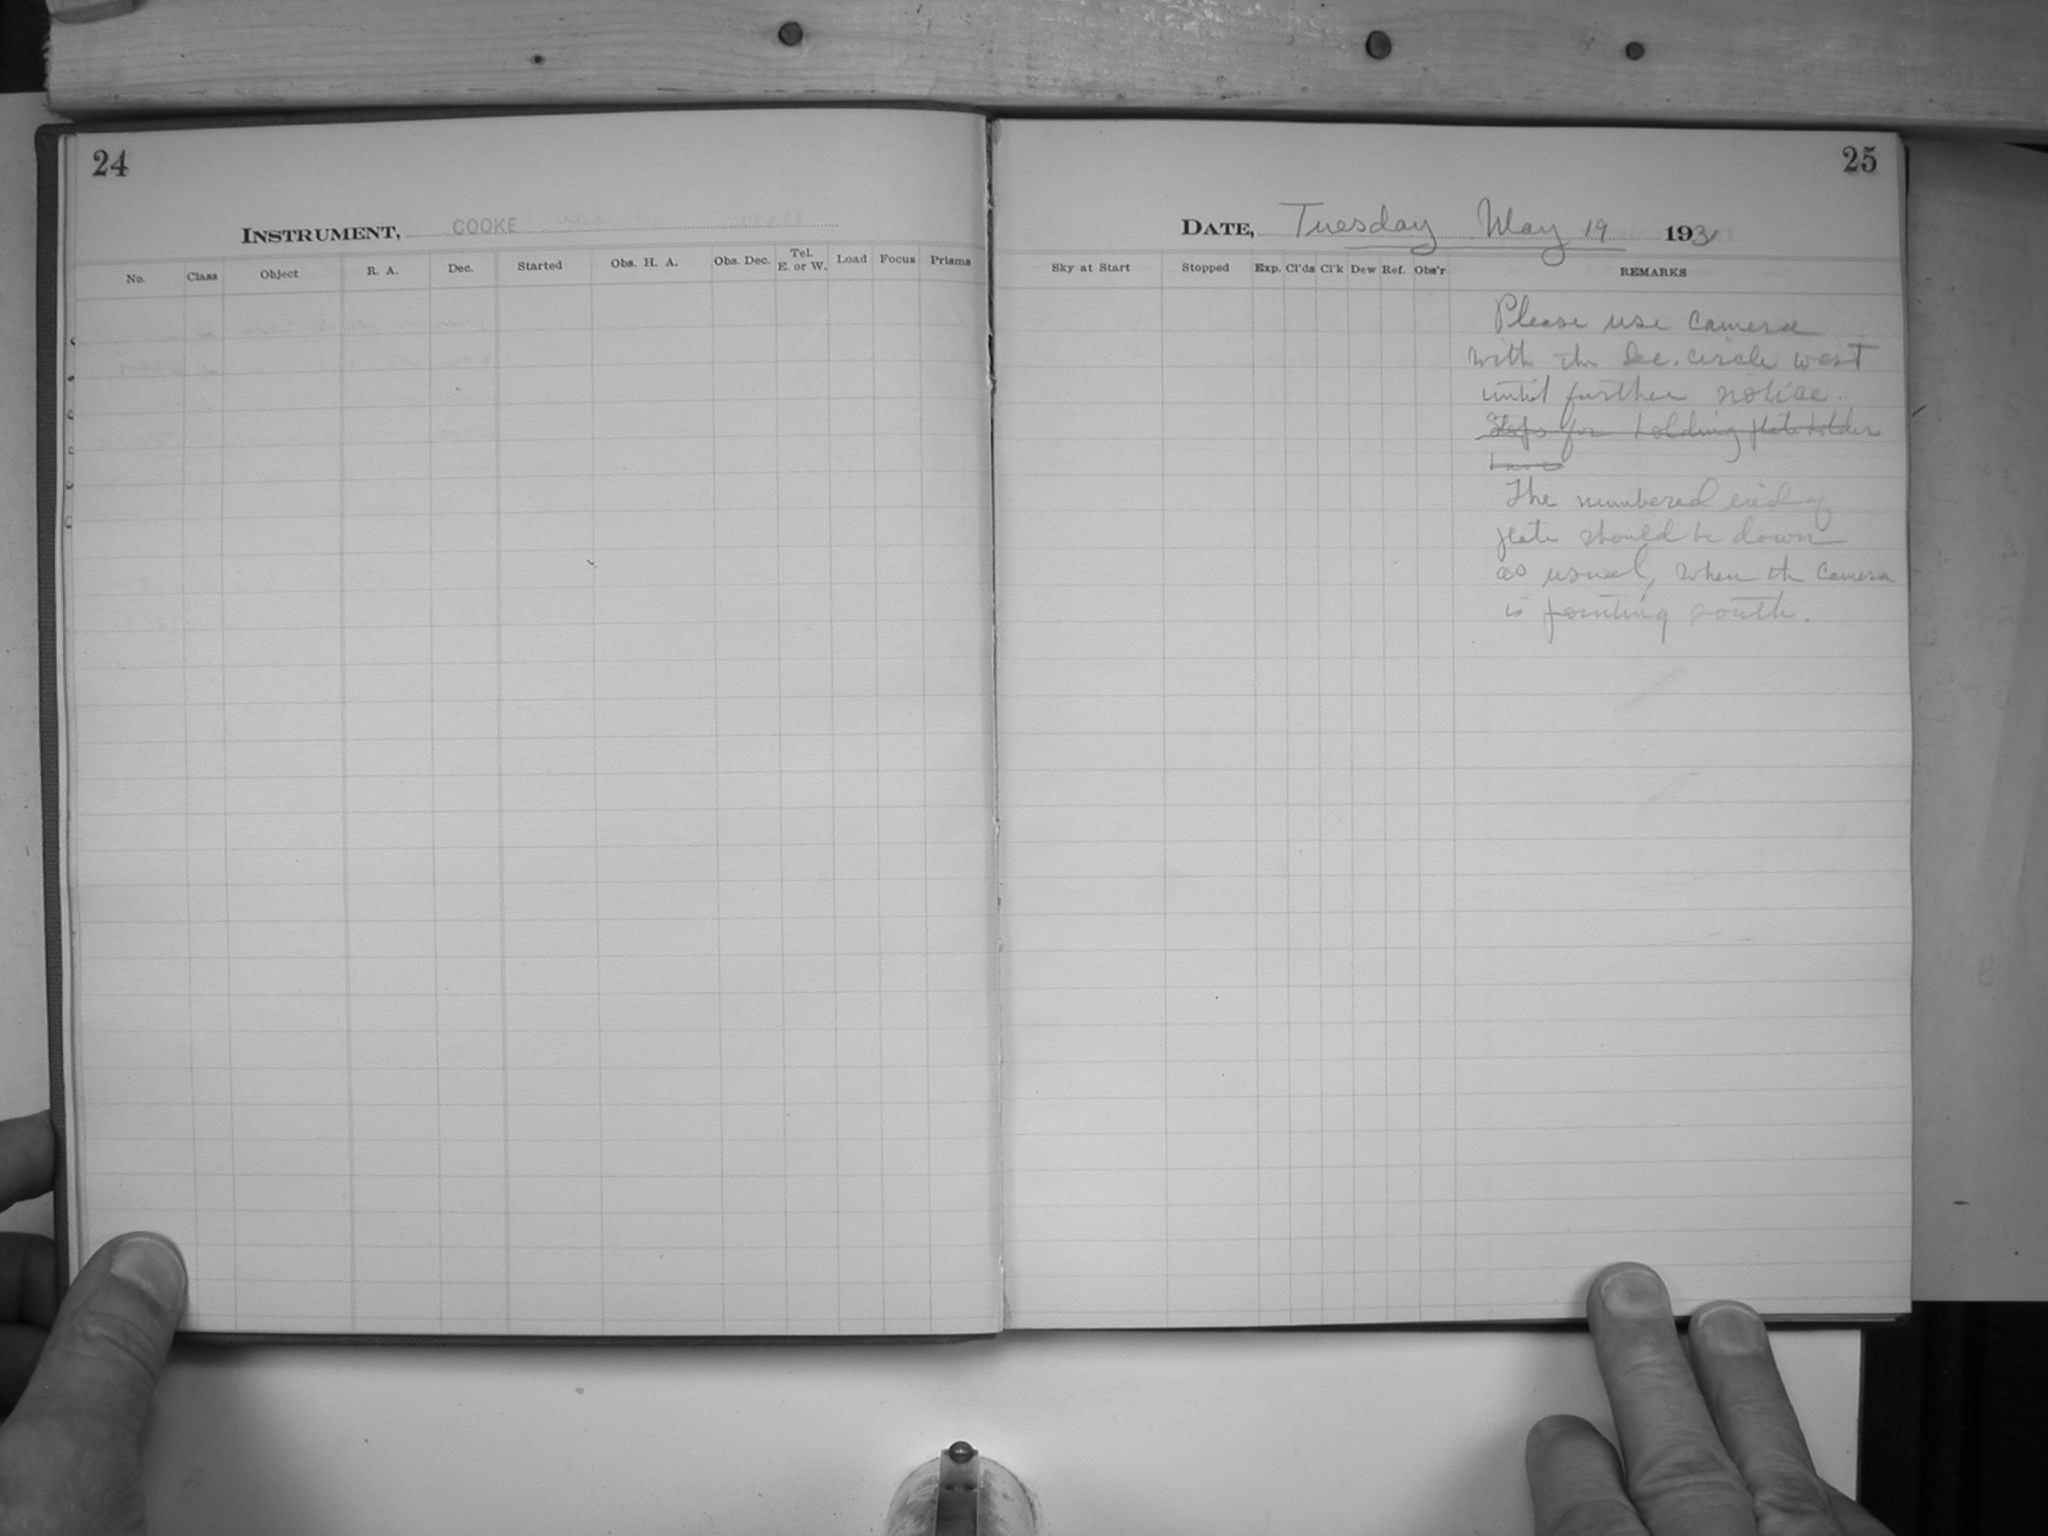 24
INSTRUMENT, COOKE
No. Class Object R. A. Dec. Started Obs. H. A. Obs. Dec. Tel. E. or W. Load Focus Prisms
25
DATE, Tuesday May 19 1931
Sky at Start Stopped Exp. Cl'ds Cl'k Dew Ref. Obs'r REMARKS
Please use camera
with the Dec. circle west
until further notice.
for holding plate holder
have
The numbered end of
plate should be down
as usual, when the camera
is pointing south.